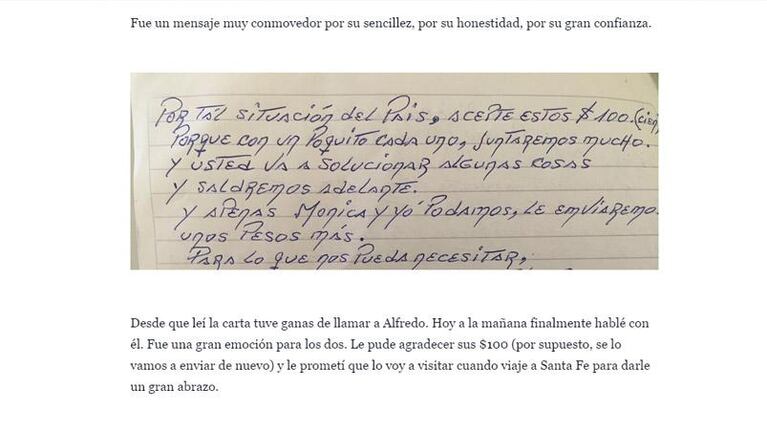 Fue un mensaje muy conmovedor por su sencillez, por su honestidad, por su gran confianza.
POR TAL SITUACIÓN del PAIS, ACEPTE ESTOS $100.(cien)
PORQUE CON UN POQUITO CADA UNO, JUNTAREMOS MUCHO.
Y USTED VA A SOLUCIONAR ALGUNAS COSAS
Y SALDREMOS ADELANTE.
Y APENAS MONICA Y YO PODAMOS, LE EMVIAREMO
UNOS PESOS MÁS.
PARA LO QUE NOS PUEDA NECESITAR,
Desde que leí la carta tuve ganas de llamar a Alfredo. Hoy a la mañana finalmente hablé con
él. Fue una gran emoción para los dos. Le pude agradecer sus $100 (por supuesto, se lo
vamos a enviar de nuevo) y le prometí que lo voy a visitar cuando viaje a Santa Fe para darle
un gran abrazo.